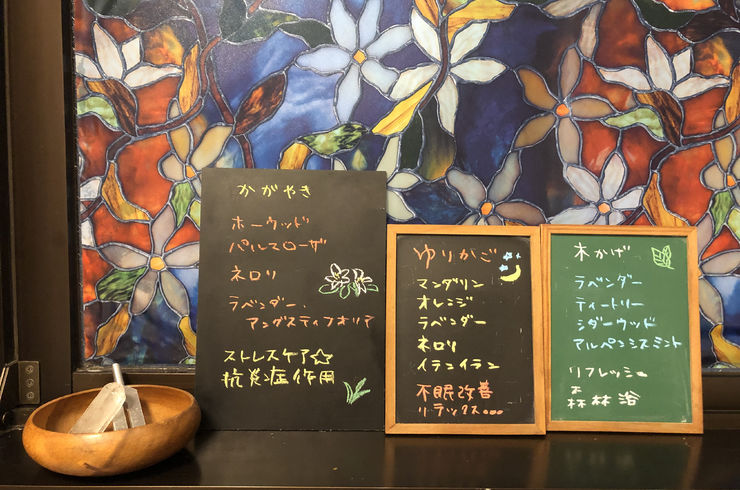 かがやき
ホーウッド
パルマローザ
ネロリ
ラベンダー、
アングスティフオリア
ストレスケア☆
抗炎症作用
ゆりかご
マンダリン
オレンジ
ラベンダー
ネロリ
イランイラン
不眠改善
リラックス
木かげ
ラベンダー
ティートリー
シダーウッド
アルペンシスミント
リフレッシュ
森林浴